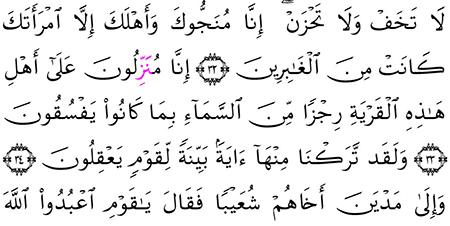 لَا تَخَفْ وَلَا تَحْزَنْ ۖ إِنَّا مُنَجُّوكَ وَأَهْلَكَ إِلَّا ٱمْرَأَتَكَ
كَانَتْ مِنَ ٱلْغَٰبِرِينَ ﴿٣٣﴾ إِنَّا مُنَزِّلُونَ عَلَىٰٓ أَهْلِ
هَٰذِهِ ٱلْقَرْيَةِ رِجْزًا مِّنَ ٱلسَّمَآءِ بِمَا كَانُوا۟ يَفْسُقُونَ
﴿٣٣﴾ وَلَقَد تَّرَكْنَا مِنْهَآ ءَايَةًۢ بَيِّنَةً لِّقَوْمٍ يَعْقِلُونَ ﴿٣٤﴾
وَإِلَىٰ مَدْيَنَ أَخَاهُمْ شُعَيْبًا فَقَالَ يَٰقَوْمِ ٱعْبُدُوا۟ ٱللَّهَ